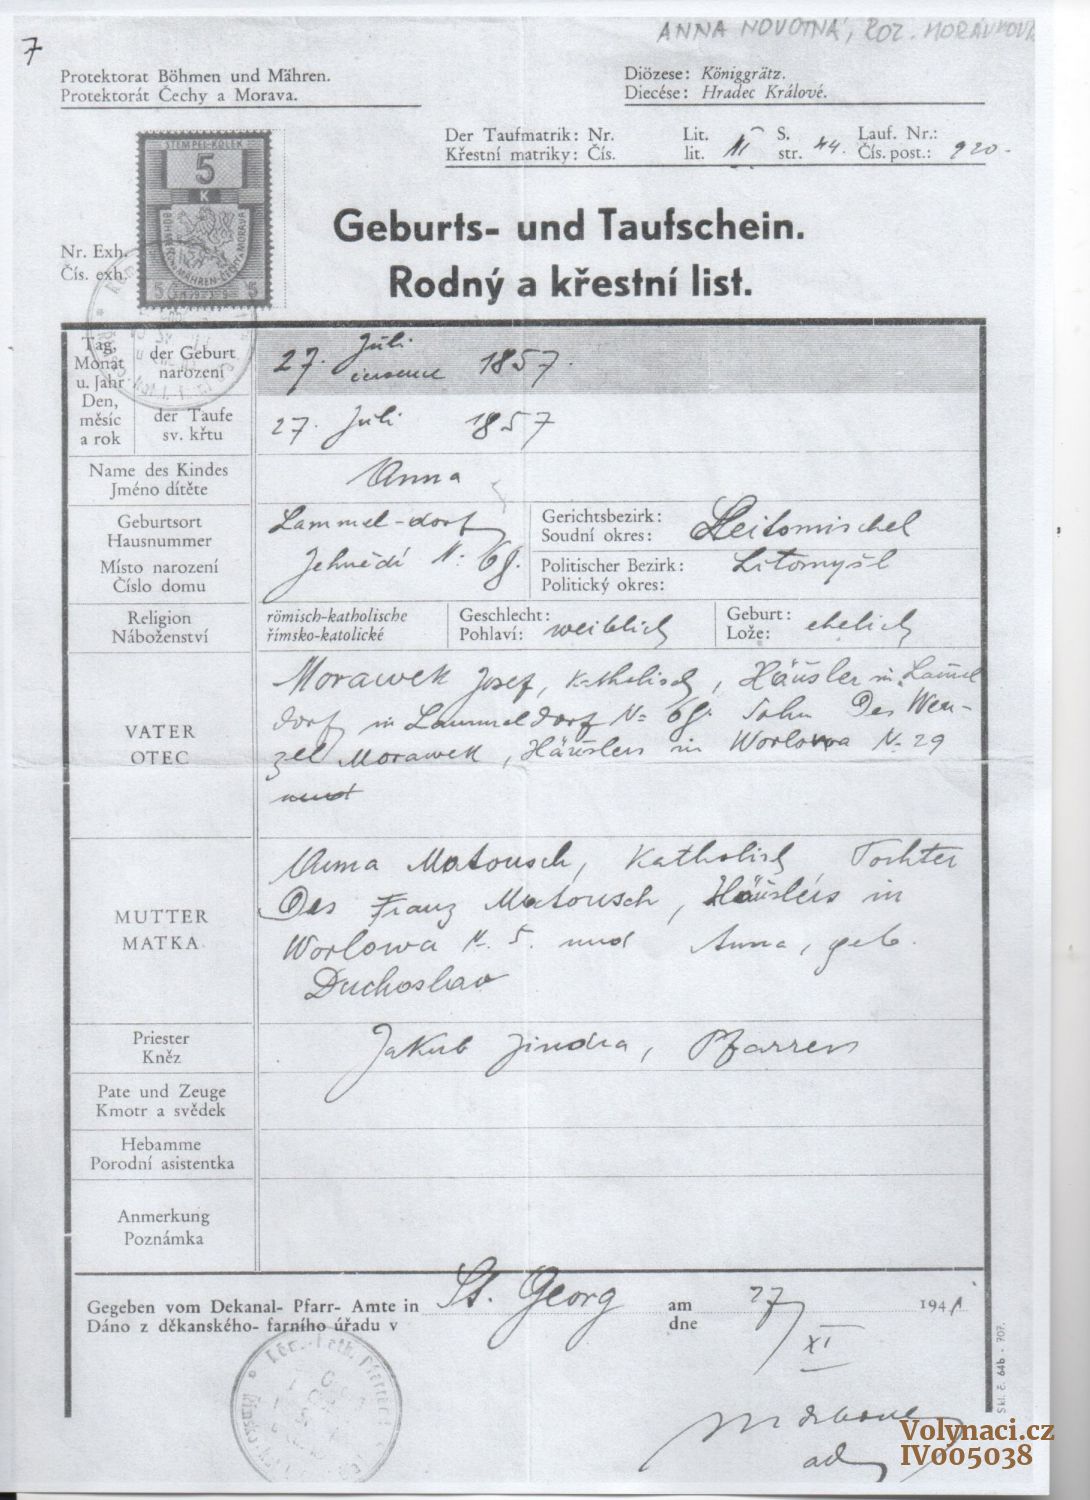 7
ANNA NOVOTNÁ, ROZ. MORÁVKOVÁ
Protektorat Böhmen und Mähren.
Protektorát Čechy a Morava.
Diözese: Königgrätz.
Diecése: Hradec Králové.
Der Taufmatrik: Nr. Lit. S. Lauf. Nr.:
Křestní matriky: Čís. lit. III str. 44. Čís. post.: 920.
STEMPEL-KOLEK
5
K
BÖHMEN U. MÄHREN-ČECHY A MORAVA
5 5
Nr. Exh.
Čís. exh.
Geburts- und Taufschein.
Rodný a křestní list.
Tag, Monat u. Jahr
Den, měsíc a rok
der Geburt
narození
27. Juli
července 1857.
der Taufe
sv. křtu
27. Juli 1857
Name des Kindes
Jméno dítěte
Anna
Geburtsort
Hausnummer
Místo narození
Číslo domu
Lammel-dorf
Jehnědí N. 68.
Gerichtsbezirk:
Soudní okres:
Leitomischel
Politischer Bezirk:
Politický okres:
Litomyšl
Religion
Náboženství
römisch-katholische
římsko-katolické
Geschlecht:
Pohlaví: weiblich
Geburt:
Lože: ehelich
VATER
OTEC
Morawek Josef, katholisch, Häusler in Lammel
dorf in Lammeldorf N= 68. Sohn Des Wen-
zel Morawek, Häuslers in Worlowa N. 29
und
MUTTER
MATKA
Anna Matousch, Katholisch Tochter
Des Franz Matousch, Häuslers in
Worlowa N. 5. und Anna, geb.
Duchoslav
Priester
Kněz
Jakub Jindra, Pfarrer
Pate und Zeuge
Kmotr a svědek
Hebamme
Porodní asistentka
Anmerkung
Poznámka
Gegeben vom Dekanal- Pfarr- Amte in St. Georg am 27 1941
Dáno z děkanského- farního úřadu v dne XI
Skl. č. 64b - 707.
Röm.-kath. Pfarramt
Volynaci.cz
IV005038